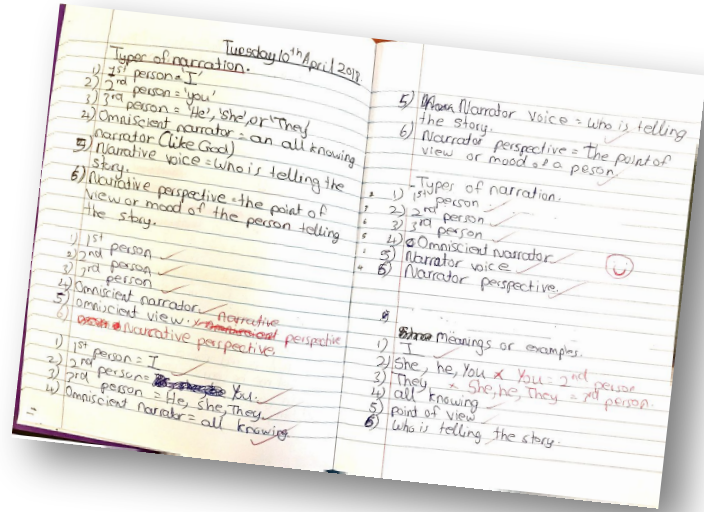 Tuesday 10th April 2018
Types of narration.
1) 1st person = 'I'
2) 2nd person = 'you'
3) 3rd person = 'He', 'she', or 'They
4) Omniscient narrator = an all knowing
narrator (Like God)
5) Narrative voice = Who is telling the
story.
6) Narrative perspective = the point of
view or mood of the person telling
the story.
1) 1st person
2) 2nd person
3) 3rd person
4) Omniscient narrator
5) omniscient view. x Narrative perspective
6) Narrative perspective.
1) 1st person = I
2) 2nd person = You.
3) 3rd person = He, She, They
4) Omniscient narrator = all knowing
5) Narrator voice = Who is telling
the story.
6) Narrator perspective = The point of
view or mood of a peson.
-Types of narration.
1) 1st person
2) 2nd person
3) 3rd person
4) Omniscient narrator
5) Narrator voice
6) Narrator perspective.
meanings or examples.
1) I
2) She, he, You x You = 2nd person
3) They x She, he, They = 3rd person.
4) all knowing
5) point of view
6) Who is telling the story.